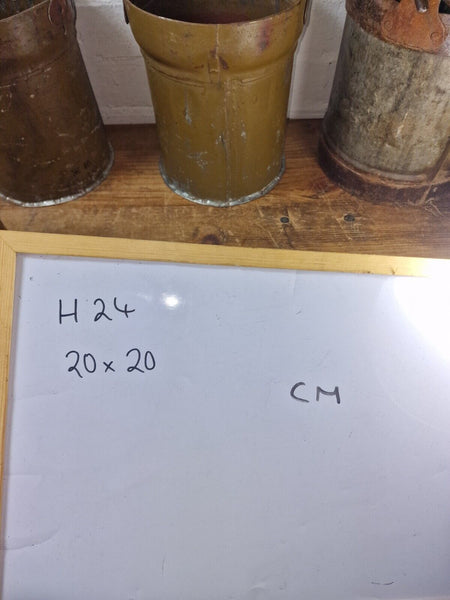 H 24
20 x 20
CM